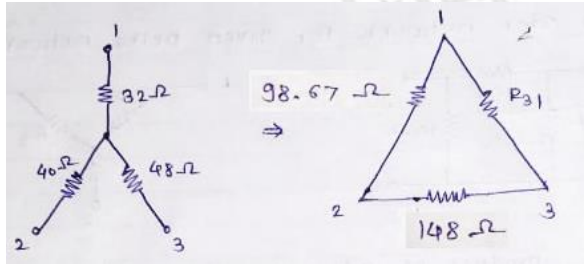 1
32Ω
40Ω
48Ω
2
3
98.67 Ω
⇒
1
R31
2
3
148 Ω